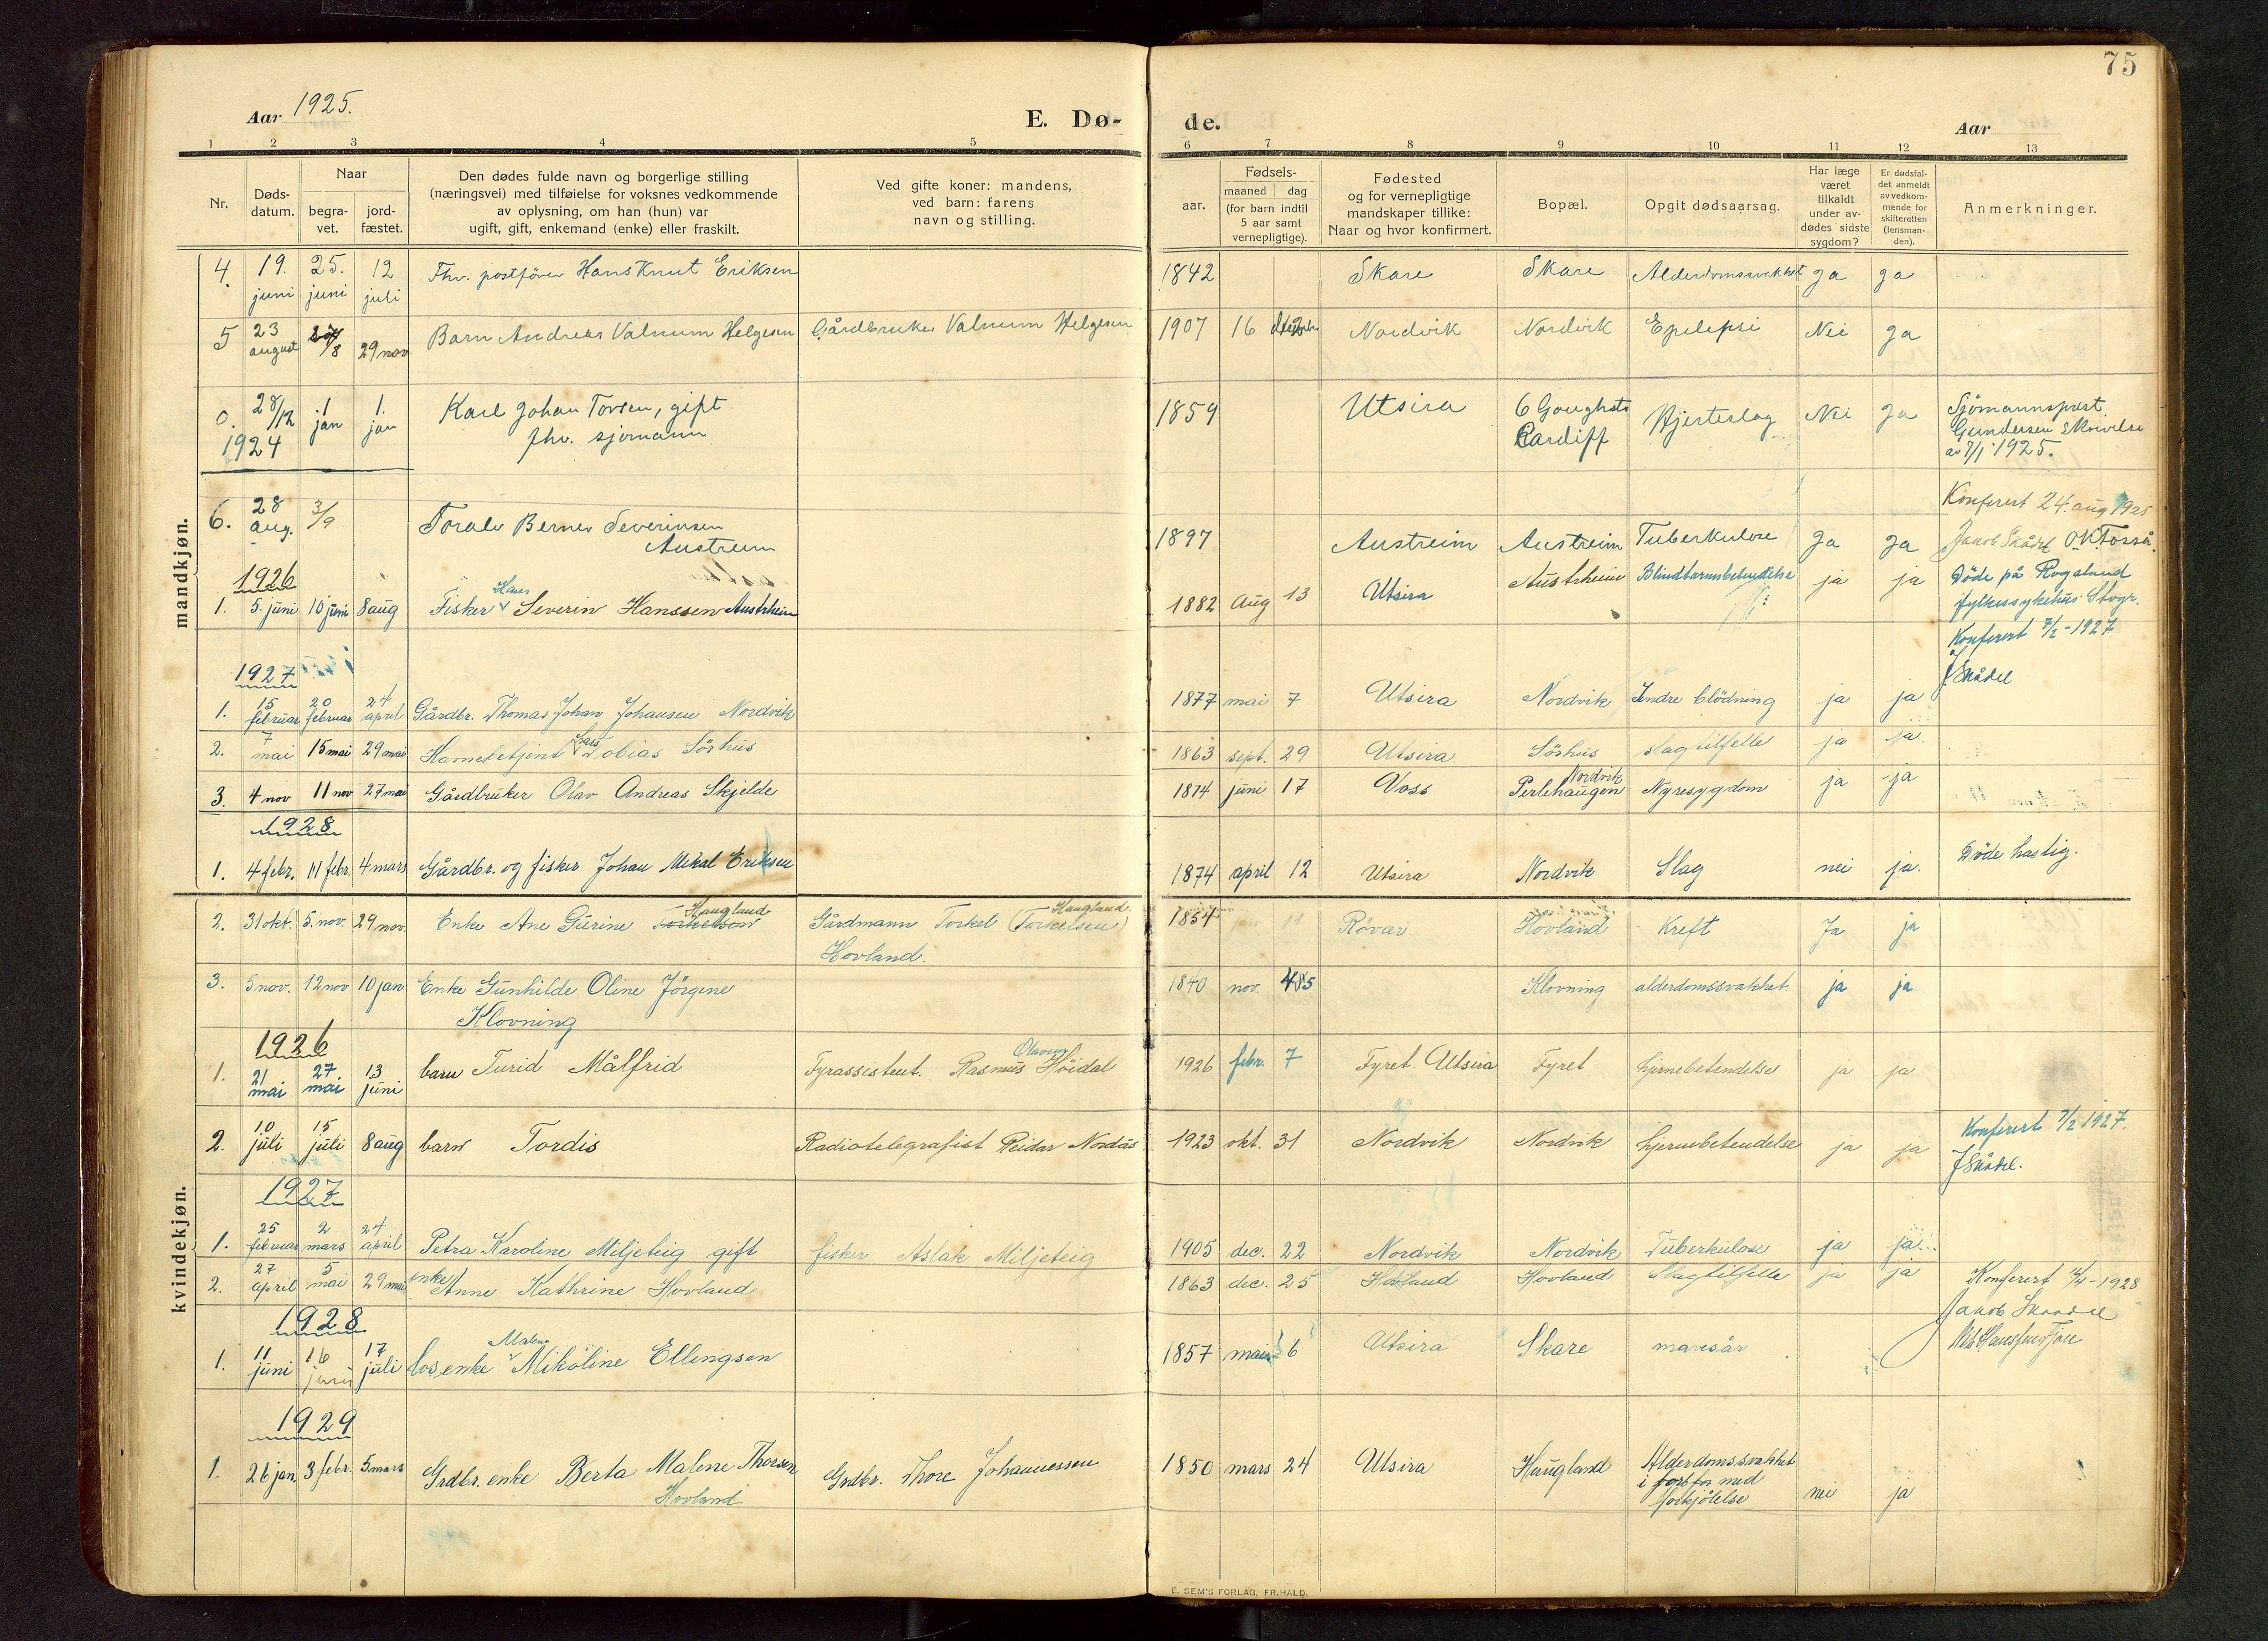 75
Aar 1925.
E. Dø-
de.
Aar
1 2 3 4 5 6 7 8 9 10 11 12 13
Nr.
Døds-
datum.
Naar
begra-
vet.
jord-
fæstet.
Den dødes fulde navn og borgerlige stilling
(næringsvei) med tilføielse for voksnes vedkommende
av oplysning, om han (hun) var
ugift, gift, enkemand (enke) eller fraskilt.
Ved gifte koner: mandens,
ved barn: farens
navn og stilling.
Fødsels-
aar.
maaned dag
(for barn indtil
5 aar samt
vernepligtige).
Fødested
og for vernepligtige
mandskaper tillike:
Naar og hvor konfirmert.
Bopæl.
Opgit dødsaarsag.
Har læge
været
tilkaldt
under av-
dødes sidste
sygdom?
Er dødsfal-
det anmeldt
av vedkom-
mende for
skifteretten
(lensman-
den).
Anmerkninger.
mandkjøn.
4. 19. juni 25. juni 12 juli Fhv. postfører Hans Knut Eriksen 1842 Skare Skare Alderdomssvakhet ja ja
5 23 august /8 29 nov Barn Andreas Valnum Helgesen Gårdbruker Valnum Helgesen 1907 16 Nordvik Nordvik Epilepsi Nei ja
0. 28/12 1924 1 jan 1. jan Karl Johan Torsen, gift
fhv. sjømann 1859 Utsira 6 Goughsts
Cardiff Hjerteslag Nei ja Sjømannsprest
Gundersen skrivelse
av 7/1 1925.
Konferert 24. aug 1925
6. 28 aug. 3/9 Toralv Berner Severinsen
Austreim 1897 Austreim Austreim Tuberkulose ja ja Jakob Skådel O.K.
1926
1. 5. juni 10 juni 8 aug Fisker Hans Severin Hanssen Austrheim 1882 Aug 13 Utsira Austrheim Blindtarmsbetendelse ja ja Döde på Rogaland
fylkessykehus Stvgr.
Konferert 7/2 - 1927
J Skådel
1927
1. 15 februar 20 februar 24 april Gårdbr. Thomas Johan Johansen Nordvik 1877 mai 7 Utsira Nordvik Indre blödning ja ja
2. 7 mai 15 mai 29 mai Havnebetjent Lars Tobias Sörhus 1863 sept. 29 Utsira Sörhus slagtilfelle ja ja.
3. 4 nov 11 nov 27 mai Gårdbruker Olav Andreas Skjelde 1874 juni 17 Voss Nordvik
Perlehaugen Nyresygdom ja ja
1928
1. 4 febr. 11 febr. 4 mars Gårdbr. og fisker Johan Mikal Eriksen 1874 april 12 Utsira Nordvik Slag nei ja. Döde hastig.
kvindekjøn.
2. 31 okt. 5. nov. 29 nov. Enke Ane Gurine Torkelsen Haugland Gårdmann Torkel (Torkelsen) Haugland
Hovland. 1854 jan 11 Röver Hovland Kreft Ja ja
3. 5 nov. 12 nov 10 jan. Enke Gunhilde Oline Jörgine
Klovning 1840 nov. Klovning alderdomssvakhet. ja ja
1926
1. 21 mai 27 mai 13 juni barn Turid Målfrid Fyrassistent. Rasmus Olaviur Höidal 1926 febr. 7 Fyret. Utsira Fyret hjernebetendelse ja ja
2. 10 juli 15 juli 8 aug barn Tordis Radiotelegrafist Reidar Nordås 1923 okt. 31 Nordvik Nordvik hjernebetendelse ja ja Konferert 7/2 1927.
J Skådel.
1927
1. 25 februar 2 mars 24 april Petra Karoline Miljeteig gift fisker Aslak Miljeteig 1905 dec. 22 Nordvik Nordvik Tuberkulose ja ja
2. 27 april 5 mai 29 mai enke Anne Kathrine Hovland 1863 dec. 25 Hovland Hovland Slagtilfelle ja ja Konferert - 1928
Jakob Skaadel
1928
1. 11 juni 16 juni 17 juli los, enke Malene Mikoline Ellingsen 1857 mai 6 Utsira Skare mavesår
1929
1. 26 jan. 3 febr. 5 mars Grdbr. enke Berta Malene Thorsen
Hovland Grdbr. Thore Johannessen 1850 mars 24 Utsira Haugland Alderdomssvakhet
i med
forkjölelse nei ja
E. SEM'S FORLAG, FR.HALD.